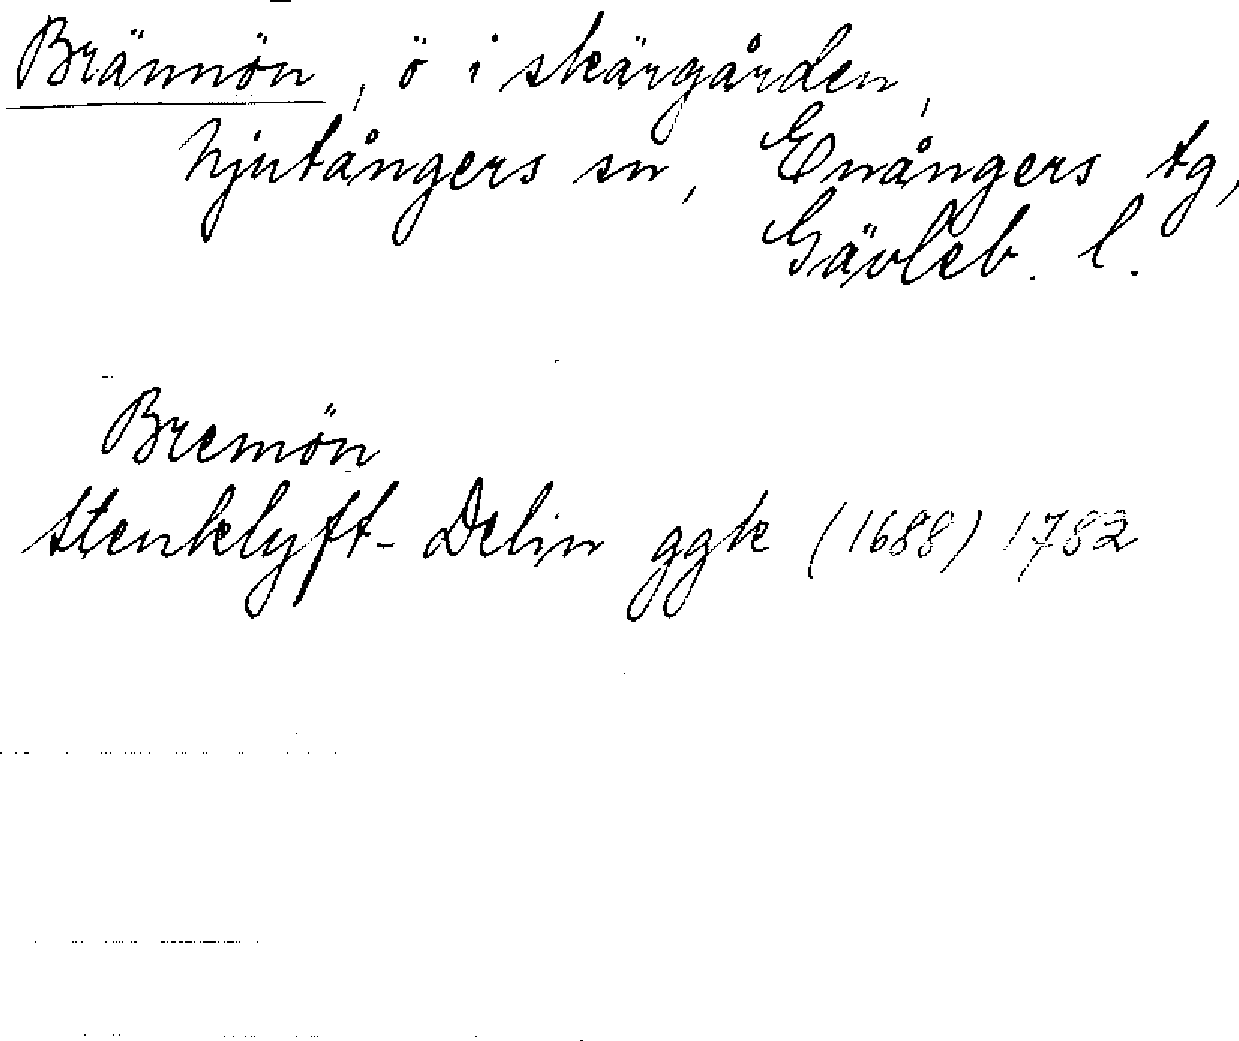 Brännön, ö i skärgården,
Njutångers sn, Enångers tg,
Gävleb. l.
Bremön
Stenklyft-Delin ggk (1688) 1782